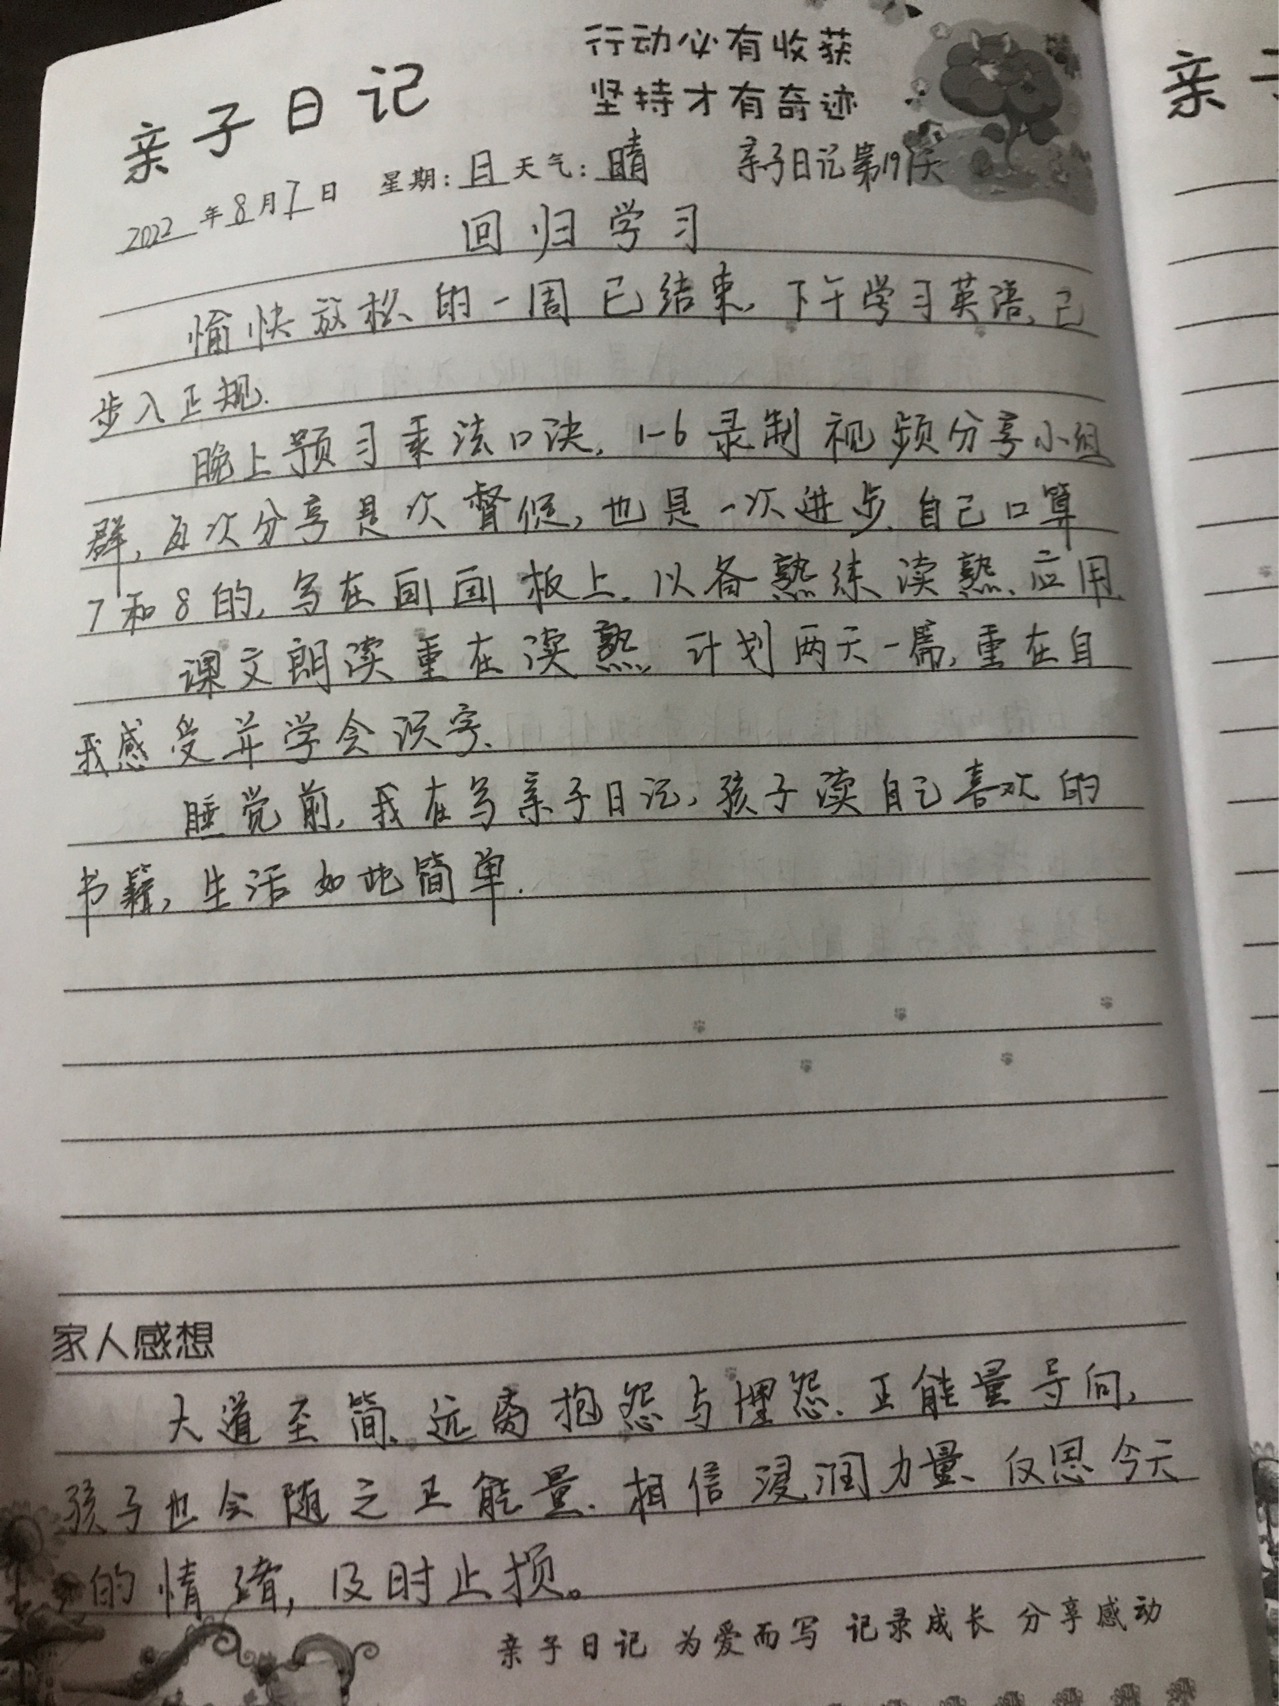 行动必有收获
坚持才有奇迹
亲子日记
亲子日记第191天
2022年8月7日 星期:日 天气:晴
回归学习
愉快放松的一周已结束.下午学习英语,已
步入正规.
晚上预习乘法口诀,1-6录制视频分享小组
群,每次分享是次督促,也是一次进步.自己口算
7和8的,写在画画板上.以备熟练读熟.应用.
课文朗读重在读熟.计划两天一篇,重在自
我感受并学会识字.
睡觉前,我在写亲子日记,孩子读自己喜欢的
书籍,生活如此简单.
家人感想
大道至简.远离抱怨与埋怨.正能量导向,
孩子也会随之正能量.相信浸润力量.反思今天
的情绪,及时止损。
亲子日记 为爱而写 记录成长 分享感动
亲